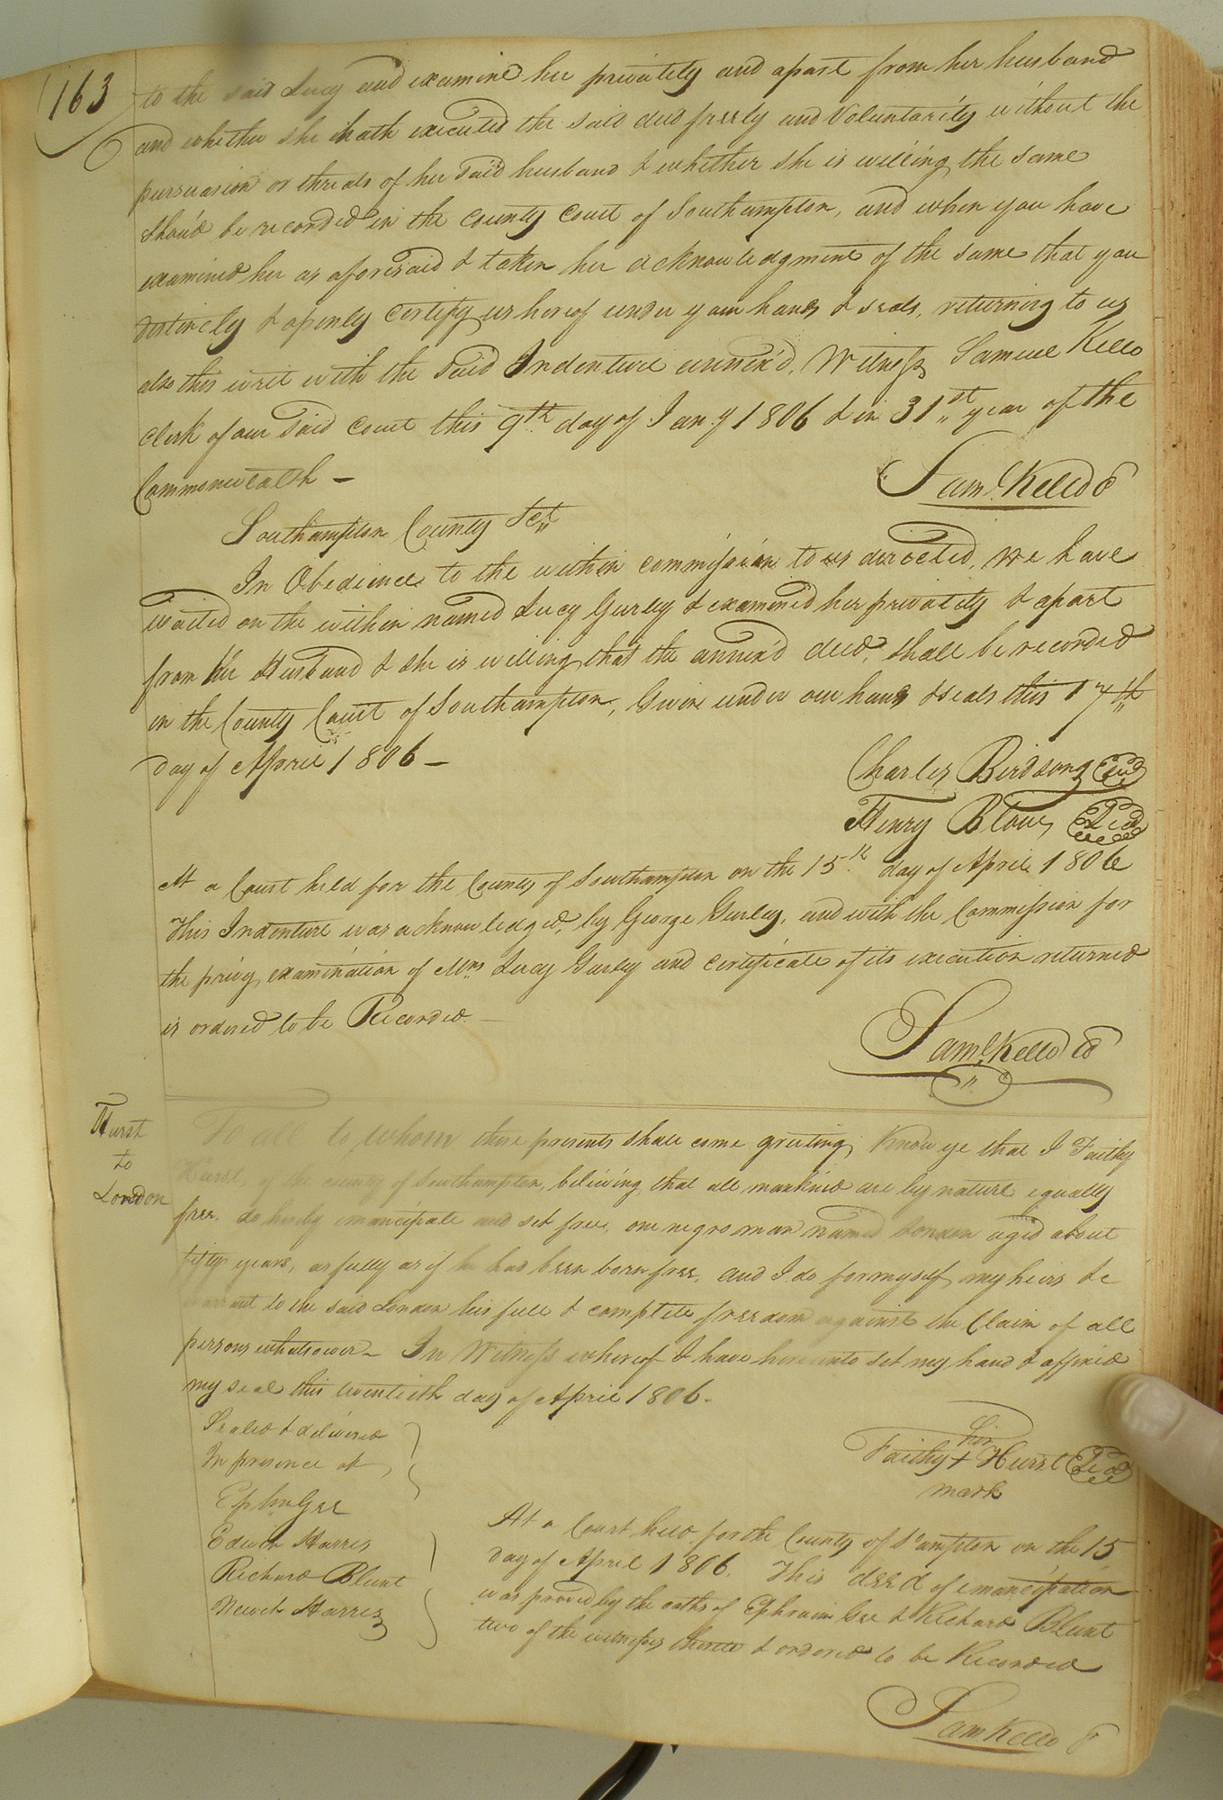 163
to the said Lucy and examine her privately and apart from her husband
and whether she hath executed the said deed freely and Voluntarily without the
persuasion or threats of her said husband & whether she is willing the same
shou'd be recorded in the County Court of Southampton, and when you have
examined her as aforesaid & taken her acknowledgment of the same that you
distincly & openly certify us hereof under your hands & seals, returning to us
also this writ with the said Indenture annex'd. Witness Samuel Kello
Clerk of our said Court this 9th day of Jany 1806 & in 31st year of the
Commonwealth -
Saml. Kello C
Southampton County Sct
In Obedience to the within commission to us directed, we have
Waited on the within named Lucy Gurley & examined her privately & apart
from her Husband & she is willing that the annex'd deed, shall be recorded
in the County Court of Southampton, Given under our hands & seals this 17th
day of April 1806 -
Charles Birdsong Seal
Henry Blow Seal
At a Court held for the County of Southampton on the 15th day of April 1806
This Indenture was acknowledged, by George Gurley, and with the Commission for
the privy examination of Mrs Lucy Gurley and certificate of its execution returned
is ordered to be Recorded. -
Saml. Kello C
Hurst
to
London
To all to whom these presents shall come greeting, Know ye that I Faithy
Hurst, of the county of Southampton, believing that all mankind are by nature equally
free, do hereby emancipate and set free, one negro man named London aged about
fifty years, as fully as if he had been born free, and I do for myself, my heirs &c
warrant to the said London his full & complete freedom against the Claim of all
persons whatsoever - In Witness whereof I have hereunto set my hand & affixed
my seal this twentieth day of April 1806.
Sealed & delivered
In presence of
Ephm Gee
Edwin Harris
Richard Blunt
Newit Harris
her
Faithy + Hurst Seal
mark
At a Court held for the County of S'ampton on the 15
day of April 1806. This deed of emancipation
was proved by the oaths of Ephraim Gee & Richard Blunt
two of the witnesses thereto & ordered to be Recorded
Sam Kello C